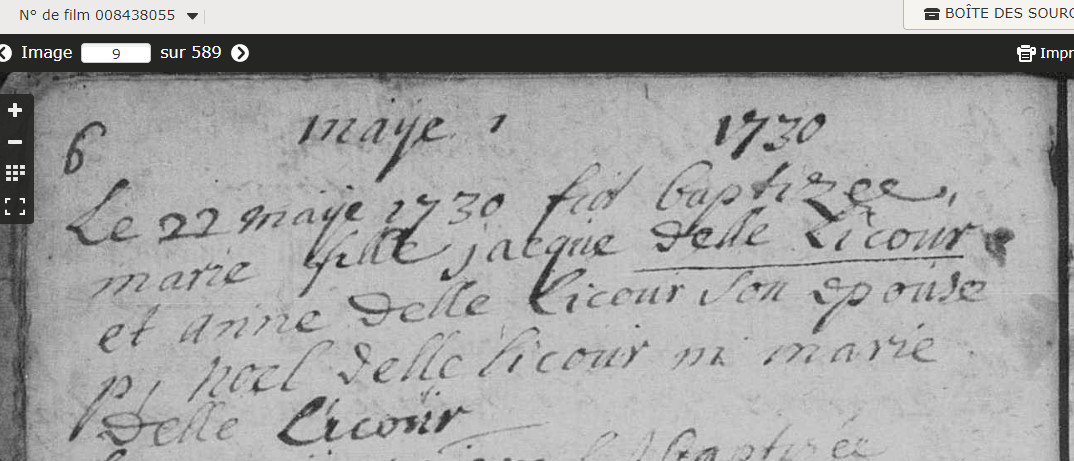 N° de film 008438055
BOÎTE DES SOURC
Image 9 sur 589
Impr
6 maije 1 1730
Le 22 maije 1730 fut baptizee,
marie fille jacque Delle Licour
et anne Delle Licour son epouse
p, noel Delle licour m marie
Delle Licoür
baptizée